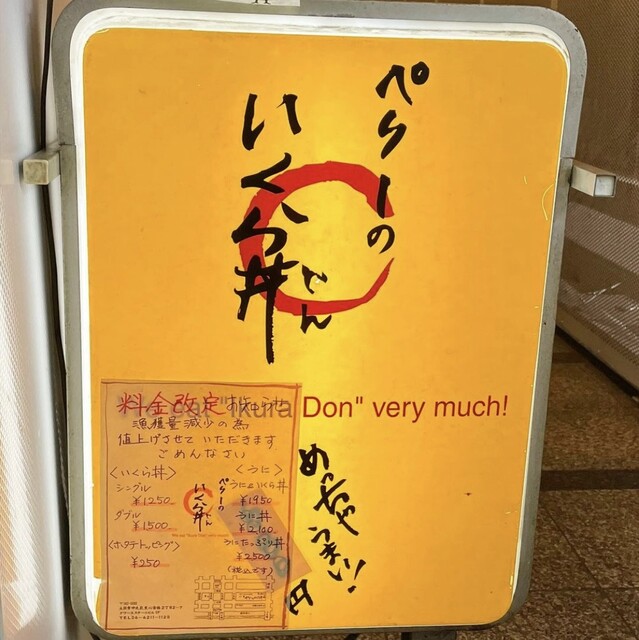 ペリーの
いくら丼
どん
"Ikura Don" very much!
料金改定お知らせ
漁獲量減少の為
値上げさせていただきます
ごめんなさい
<いくら丼>
シングル
¥1250
ダブル
¥1500
<ホタテトッピング>
¥250
<うに>
うにといくら丼
¥1950
うに丼
¥2,100
うにたっぷり丼
¥2500
(税込です)
ペリーの
いくら丼
どん
めっちゃ
うまい!